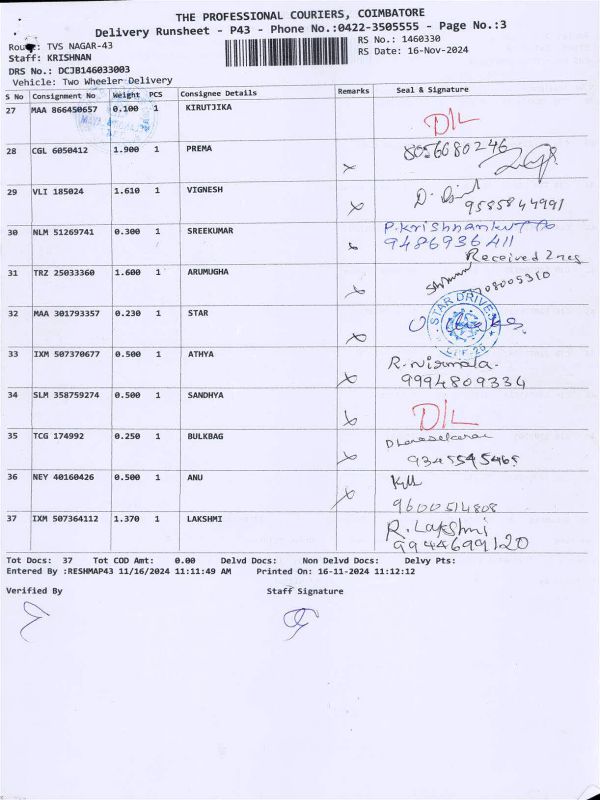 THE PROFESSIONAL COURIERS, COIMBATORE
Delivery Runsheet - P43 - Phone No.:0422-3505555 - Page No.:3
Route: TVS NAGAR-43 RS No.: 1460330
Staff: KRISHNAN RS Date: 16-Nov-2024
DRS No.: DCJB146033003
Vehicle: Two Wheeler Delivery
S No Consignment No Weight PCS Consignee Details Remarks Seal & Signature
27 MAA 866450657 0.100 1 KIRUTJIKA D/L
28 CGL 6050412 1.900 1 PREMA 8056680246
29 VLI 185024 1.610 1 VIGNESH 9585844991
30 NLM 51269741 0.300 1 SREEKUMAR P.Krishnankutta
9486936411
Received 2nes
31 TRZ 25033360 1.600 1 ARUMUGHA
32 MAA 301793357 0.230 1 STAR STAR DRIVE
33 IXM 507370677 0.500 1 ATHYA R.Nirmala.
9994809334
34 SLM 358759274 0.500 1 SANDHYA D/L
35 TCG 174992 0.250 1 BULKBAG Dhanasekaran
9345545465
36 NEY 40160426 0.500 1 ANU
9600514808
37 IXM 507364112 1.370 1 LAKSHMI R.Lakshmi
9944699120
Tot Docs: 37 Tot COD Amt: 0.00 Delvd Docs: Non Delvd Docs: Delvy Pts:
Entered By :RESHMAP43 11/16/2024 11:11:49 AM Printed On: 16-11-2024 11:12:12
Verified By Staff Signature